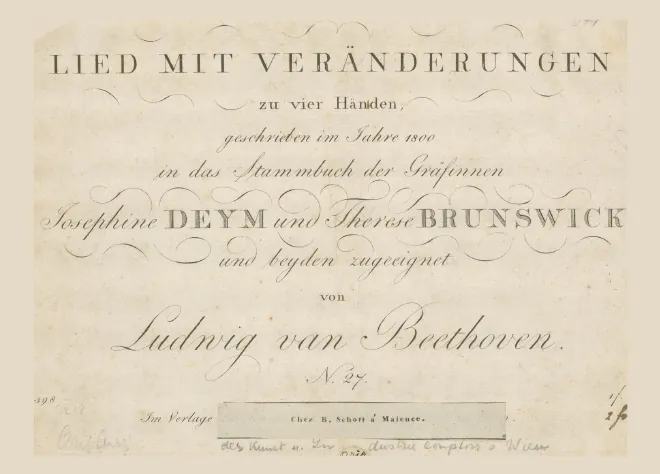 LIED MIT VERÄNDERUNGEN
zu vier Händen,
geschrieben im Jahre 1800
in das Stammbuch der Gräfinnen
Josephine DEYM und Therese BRUNSWICK
und beyden zugeeignet
von
Ludwig van Beethoven.
N. 27.
398
Im Verlage Chez B. Schott á Maience.
des Kunst u. Wien